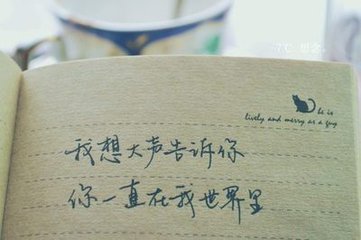 he is
lively and merry as a guy
我想大声告诉你
你一直在我世界里